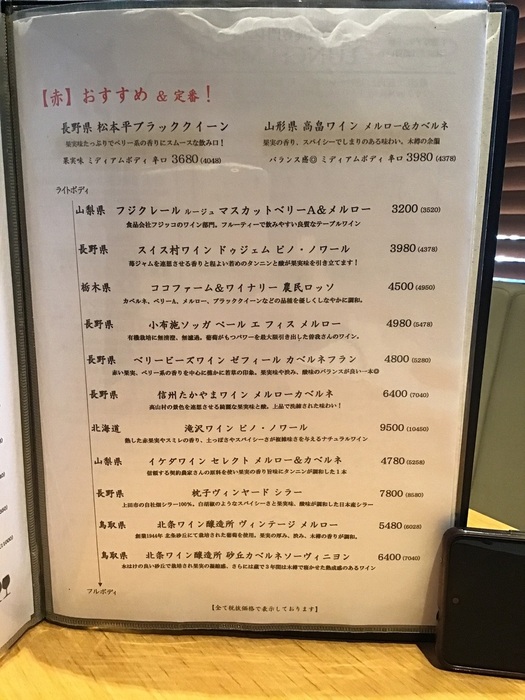 【赤】おすすめ & 定番！
長野県 松本平ブラッククイーン
果実味たっぷりでベリー系の香りにスムースな飲み口！
果実味 ミディアムボディ 辛口 3680 (4048)
山形県 高畠ワイン メルロー&カベルネ
果実の香り、スパイシーでしまりのある味わい、木樽の余韻
バランス感◎ ミディアムボディ 辛口 3980 (4378)
ライトボディ
山梨県 フジクレール ルージュ マスカットベリーA&メルロー 3200 (3520)
食品会社フジッコのワイン部門。フルーティーで飲みやすい良質なテーブルワイン
長野県 スイス村ワイン ドゥジェム ピノ・ノワール 3980 (4378)
苺ジャムを連想させる香りと程よい若めのタンニンと酸が果実味を引き立てます！
栃木県 ココファーム&ワイナリー 農民ロッソ 4500 (4950)
カベルネ、ベリーA、メルロー、ブラッククイーンなどの品種を優しくしなやかに調和。
長野県 小布施ソッガ ペール エ フィス メルロー 4980 (5478)
有機栽培に無清澄、無濾過。葡萄がもつパワーを最大限引き出した曽我さんのワイン。
長野県 ベリービーズワイン ゼフィール カベルネフラン 4800 (5280)
赤い果実、ベリー系の香りを中心に微かに若草の印象。果実味や渋み、酸味のバランスが良い一本◎
長野県 信州たかやまワイン メルローカベルネ 6400 (7040)
高山村の景色を連想させる綺麗な果実味と酸。上品で洗練された味わい！
北海道 滝沢ワイン ピノ・ノワール 9500 (10450)
熟した赤果実やスミレの香り、土っぽさやスパイシーさが複雑味さを与えるナチュラルワイン
山梨県 イケダワイン セレクト メルロー&カベルネ 4780 (5258)
信頼する契約農家さんの原料を使い果実の香り旨味にタンニンが調和した1本
長野県 枕子ヴィンヤード シラー 7800 (8580)
上田市の自社畑シラー100%。白胡椒のようなスパイシーさと果実味、酸味が調和した日本産シラー
鳥取県 北条ワイン醸造所 ヴィンテージ メルロー 5480 (6028)
創業1944年 北条砂丘にて栽培された葡萄を使用。果実の厚み、渋み、木樽の香りが調和。
鳥取県 北条ワイン醸造所 砂丘カベルネソーヴィニヨン 6400 (7040)
水はけの良い砂丘で栽培され果実の凝縮感。さらには蔵で3年間は木樽で寝かせた熟成感のあるワイン
フルボディ
【全て税抜価格で表示しております】